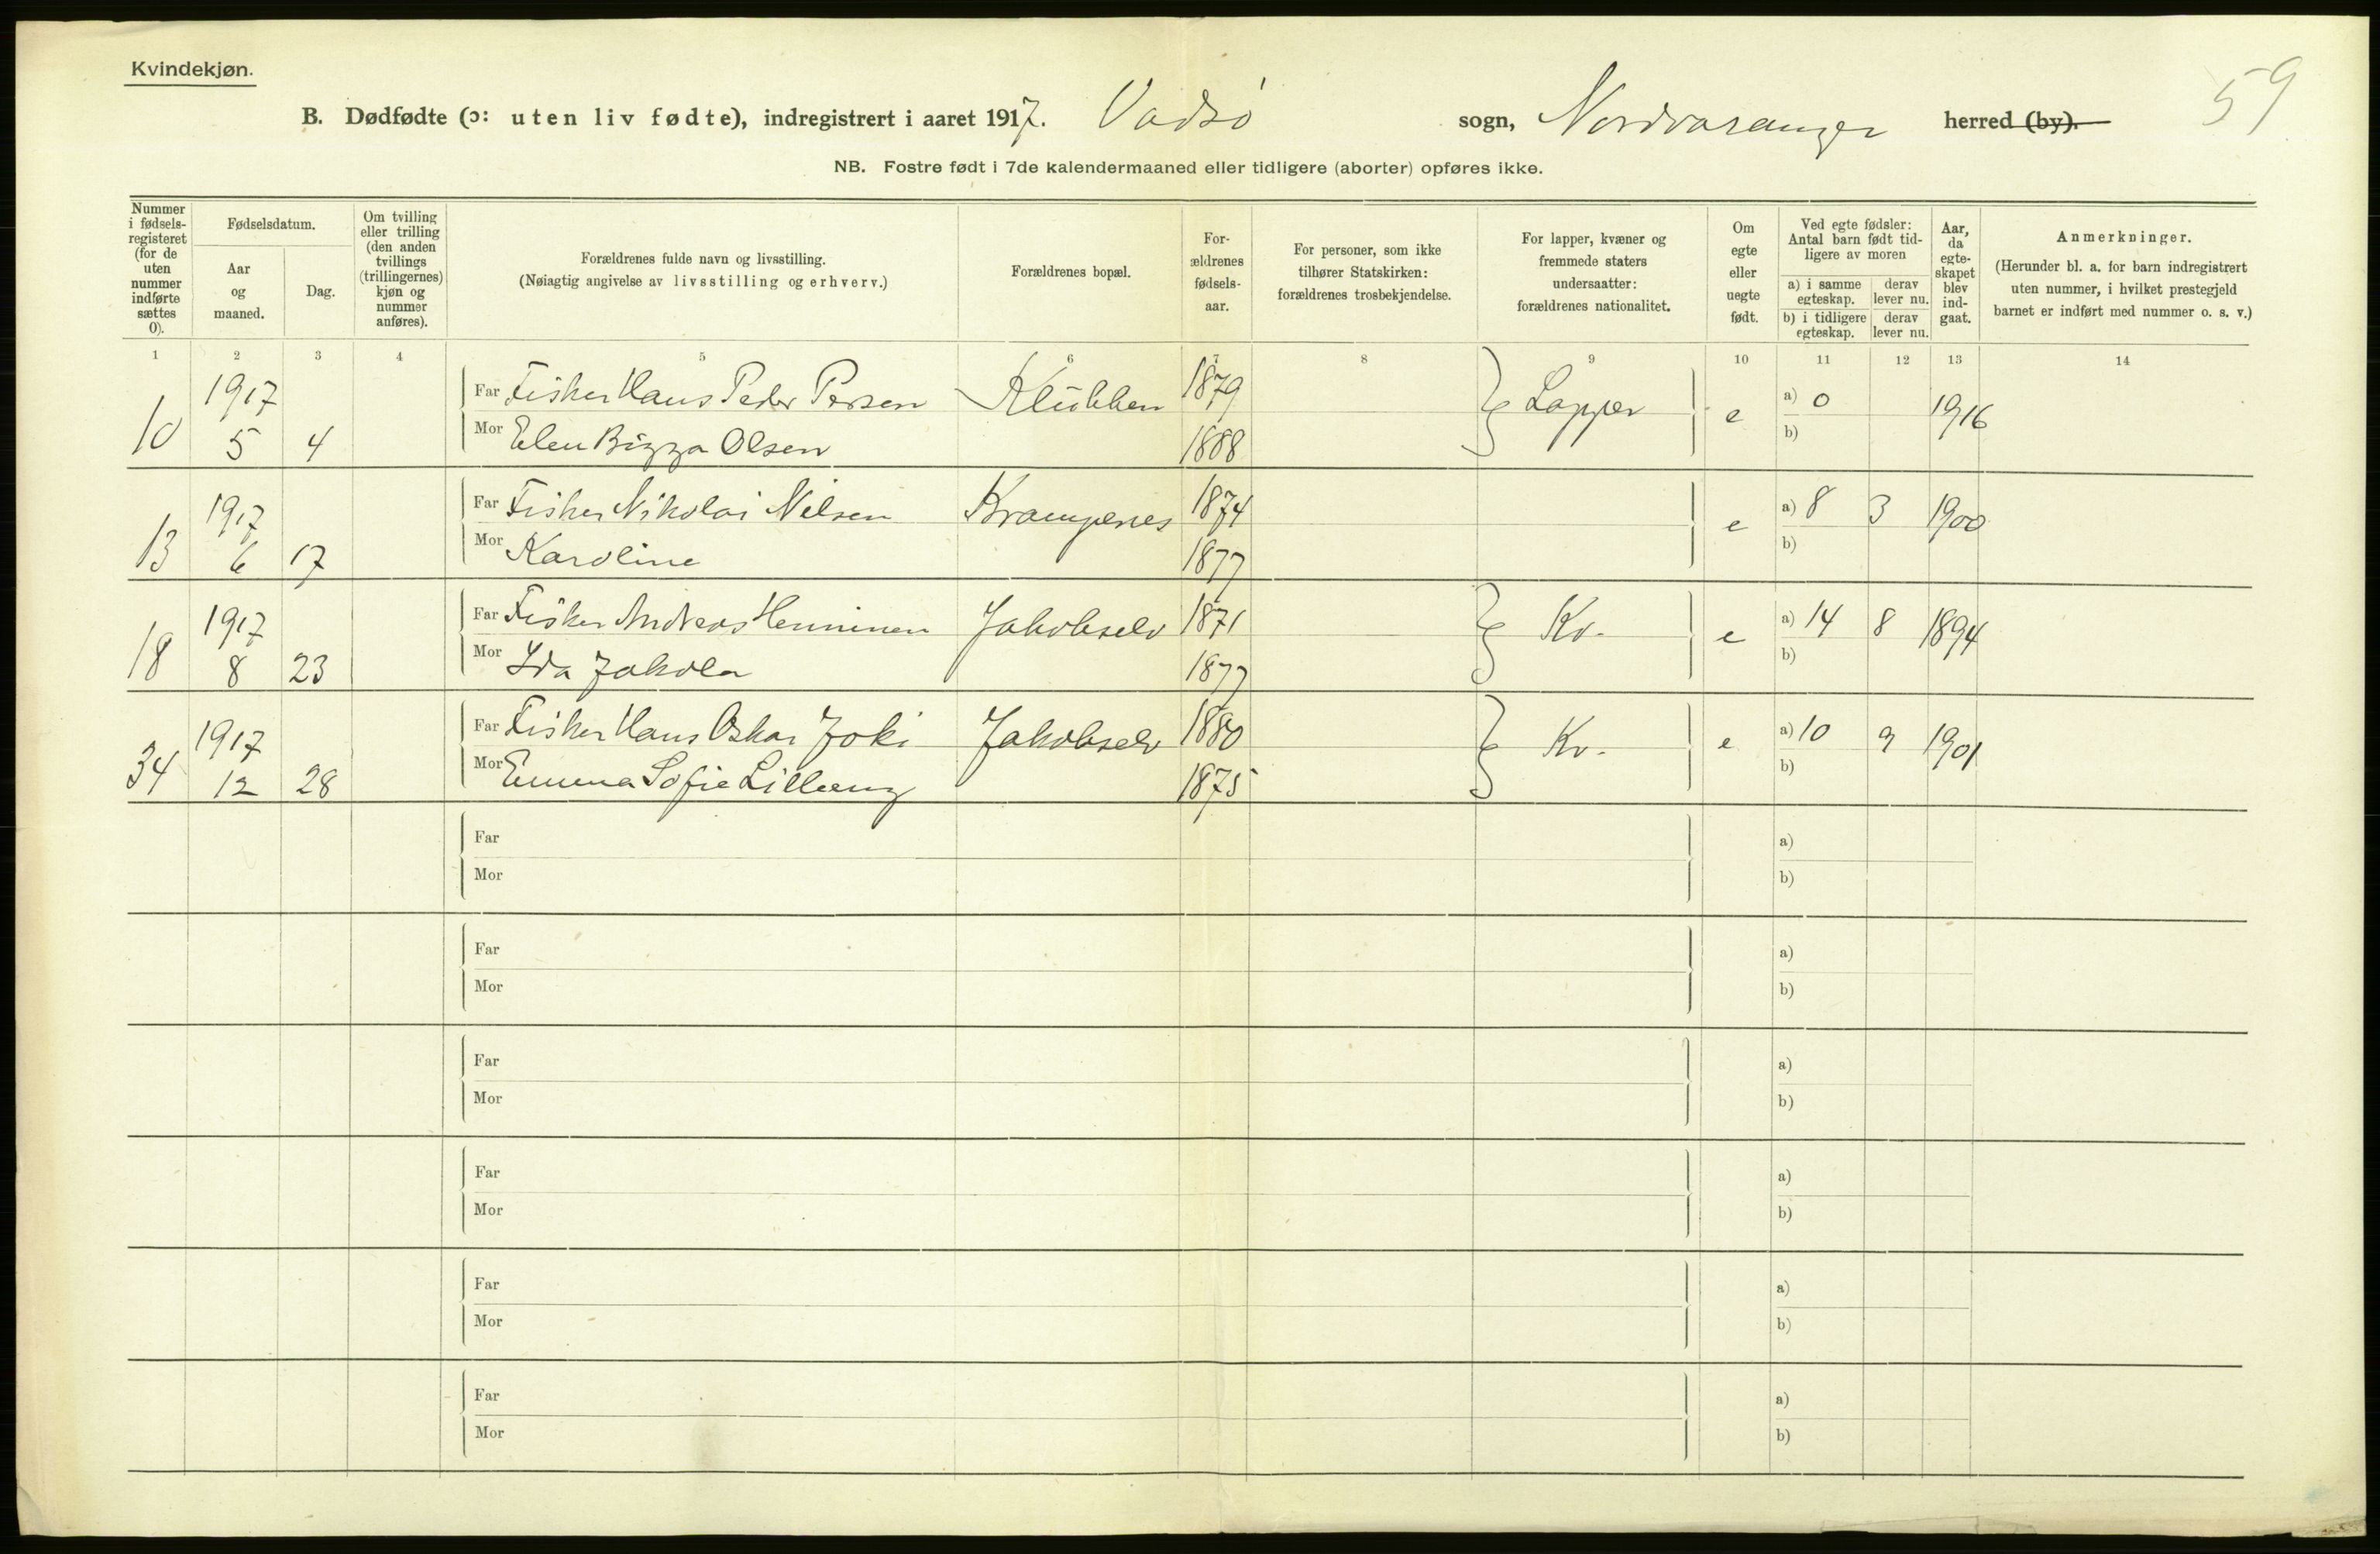 Kvindekjøn.
59
B. Dødfødte (ɔ: uten liv fødte), indregistrert i aaret 1917. Vadsø sogn, Nordvaranger herred (by).
NB. Fostre født i 7de kalendermaaned eller tidligere (aborter) opføres ikke.
Nummer i fødsels-registeret (for de uten nummer indførte sættes 0).
Fødselsdatum.
Aar og maaned.
Dag.
Om tvilling eller trilling (den anden tvillings (trillingernes) kjøn og nummer anføres).
Forældrenes fulde navn og livsstilling.
(Nøiagtig angivelse av livsstilling og erhverv.)
Forældrenes bopæl.
For-ældrenes fødsels-aar.
For personer, som ikke tilhører Statskirken: forældrenes trosbekjendelse.
For lapper, kvæner og fremmede staters undersaatter: forældrenes nationalitet.
Om egte eller uegte født.
Ved egte fødsler: Antal barn født tid-ligere av moren
a) i samme egteskap. derav lever nu.
b) i tidligere egteskap. derav lever nu.
Aar, da egte-skapet blev ind-gaat.
Anmerkninger.
(Herunder bl. a. for barn indregistrert uten nummer, i hvilket prestegjeld barnet er indført med nummer o. s. v.)
1 2 3 4 5 6 7 8 9 10 11 12 13 14
1917 Far Fisker Hans Peder Persen Klubben 1879 Lapper e a) 0 1916
10 5 4 Mor Elen Bigga Olsen 1888 b)
1917 Far Fisker Nikolai Nilsen Krampenes 1874 e a) 8 3 1900
13 6 17 Mor Karoline 1877 b)
1917 Far Fisker Andreas Henninen Jakobselv 1871 Kv. e a) 14 8 1894
18 8 23 Mor Ida Jakola 1877 b)
1917 Far Fisker Hans Oskar Joki Jakobselv 1880 Kv. e a) 10 9 1901
34 12 28 Mor Emma Sofie Lilleeng 1875 b)
Far a)
Mor b)
Far a)
Mor b)
Far a)
Mor b)
Far a)
Mor b)
Far a)
Mor b)
Far a)
Mor b)